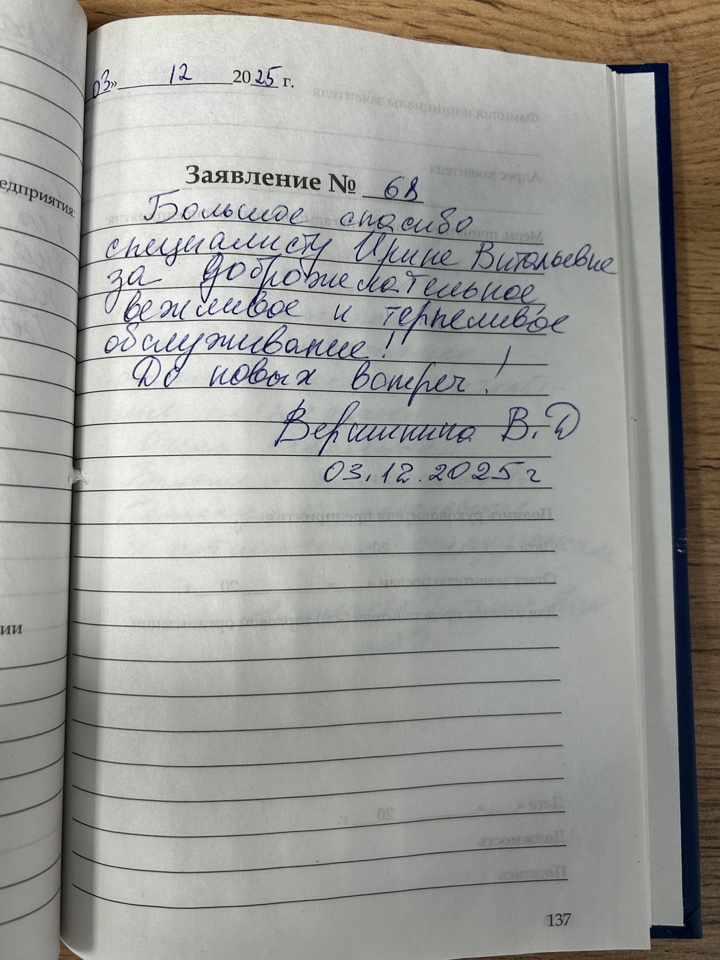 03» 12 2025 г.
Заявление № 68
Большое спасибо
специалисту Ирине Витальевне
за доброжелательное
вежливое и терпеливое
обслуживание!
До новых встреч!
Вершинина В.Д
03.12.2025г
едприятия:
ии
137